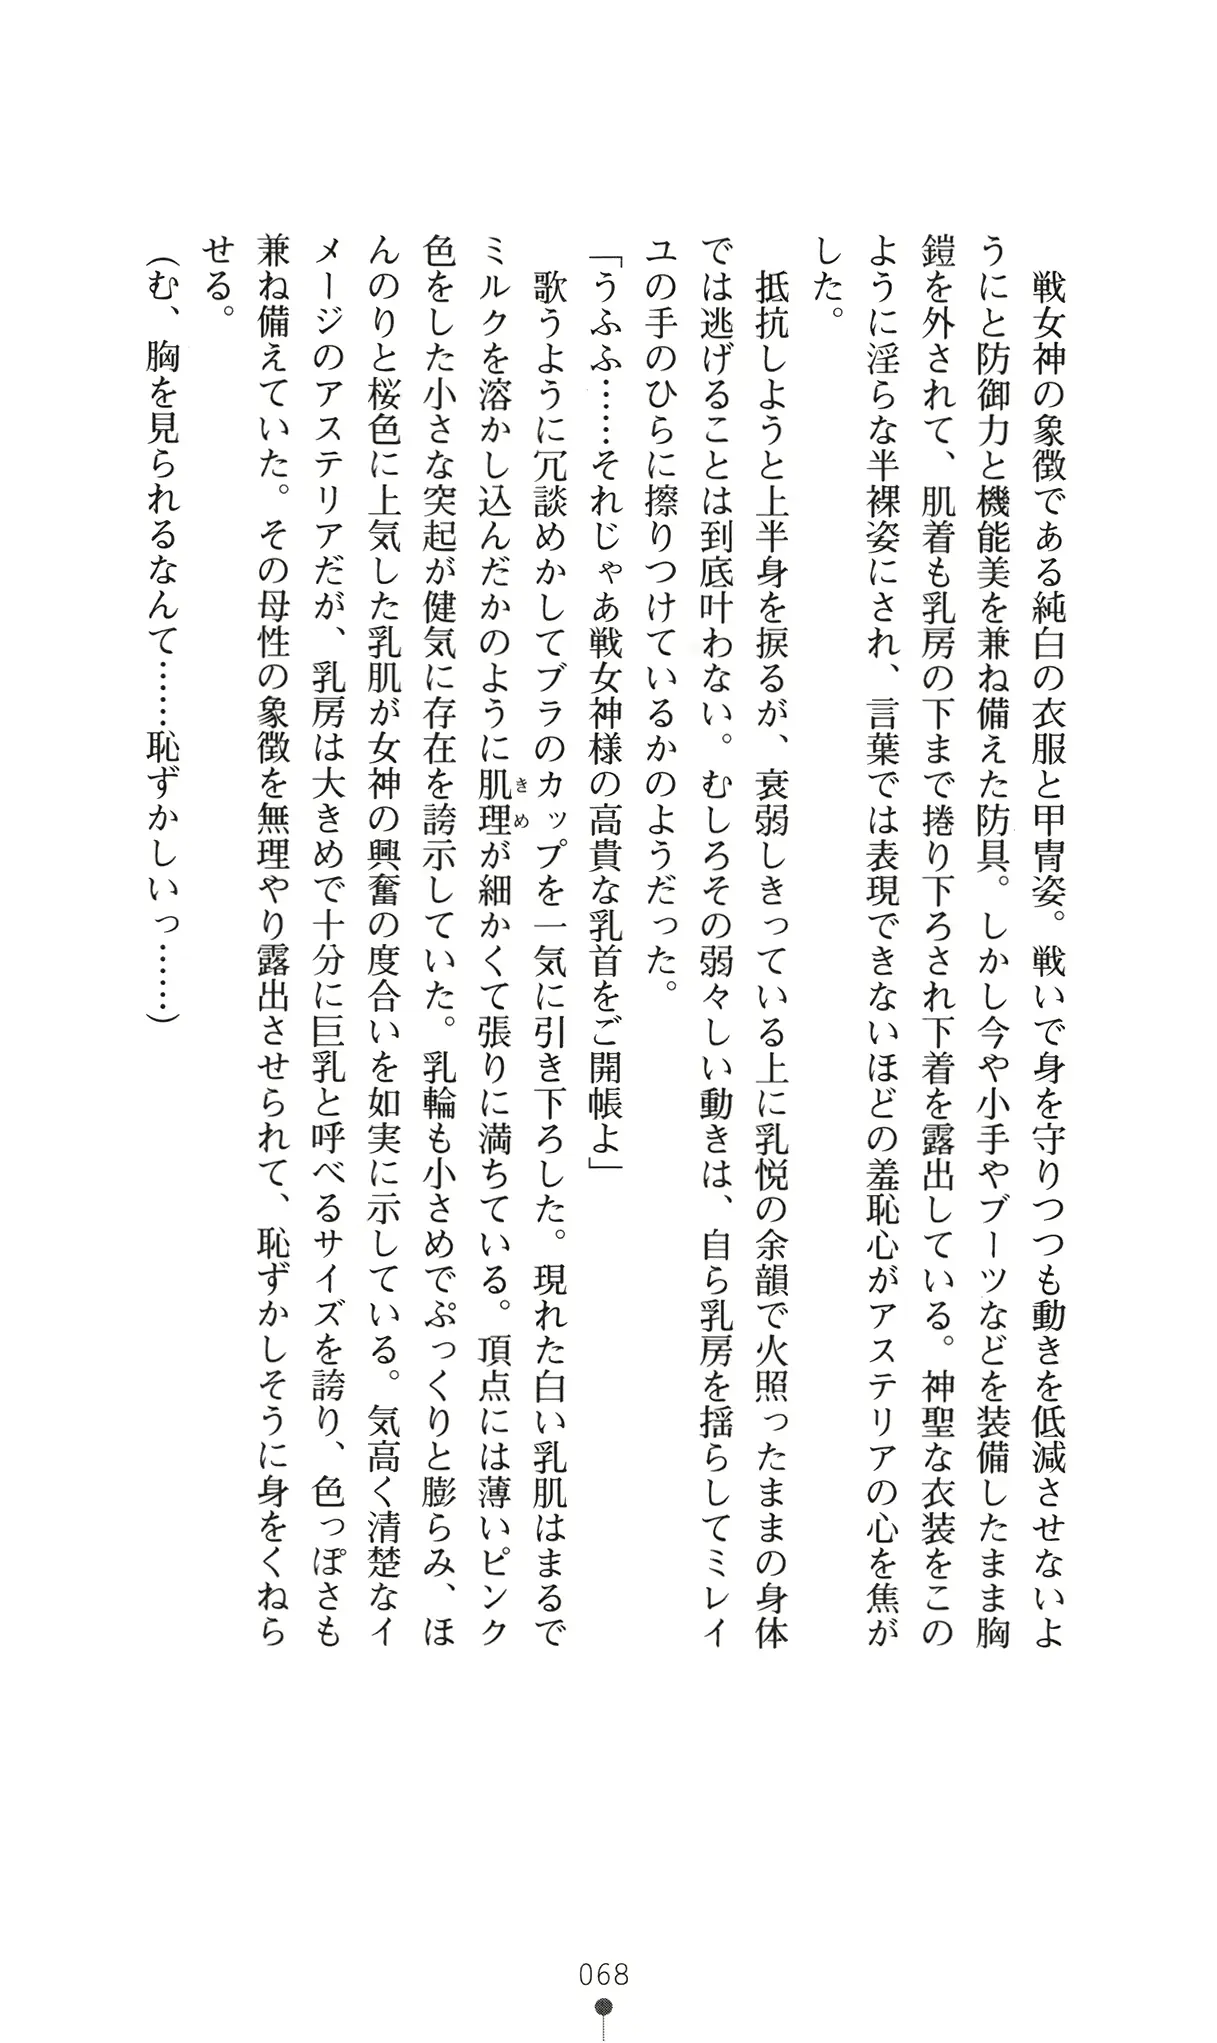 戦女神の象徴である純白の衣服と甲冑姿。戦いで身を守りつつも動きを低減させないよ
うにと防御力と機能美を兼ね備えた防具。しかし今や小手やブーツなどを装備したまま胸
鎧を外されて、肌着も乳房の下まで捲り下ろされ下着を露出している。神聖な衣装をこの
ように淫らな半裸姿にされ、言葉では表現できないほどの羞恥心がアステリアの心を焦が
した。
抵抗しようと上半身を捩るが、衰弱しきっている上に乳悦の余韻で火照ったままの身体
では逃げることは到底叶わない。むしろその弱々しい動きは、自ら乳房を揺らしてミレイ
ユの手のひらに擦りつけているかのようだった。
「うふふ……それじゃあ戦女神様の高貴な乳首をご開帳よ」
歌うように冗談めかしてブラのカップを一気に引き下ろした。現れた白い乳肌はまるで
ミルクを溶かし込んだかのように肌理きめが細かくて張りに満ちている。頂点には薄いピンク
色をした小さな突起が健気に存在を誇示していた。乳輪も小さめでぷっくりと膨らみ、ほ
んのりと桜色に上気した乳肌が女神の興奮の度合いを如実に示している。気高く清楚なイ
メージのアステリアだが、乳房は大きめで十分に巨乳と呼べるサイズを誇り、色っぽさも
兼ね備えていた。その母性の象徴を無理やり露出させられて、恥ずかしそうに身をくねら
せる。
（む、胸を見られるなんて……恥ずかしいっ……）
068